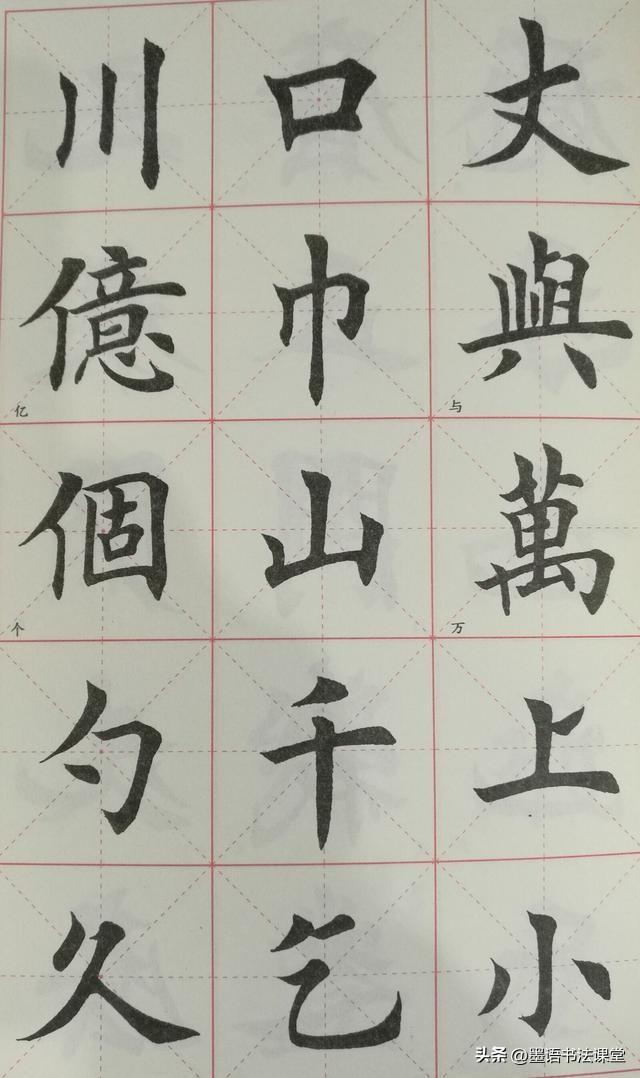 丈與与萬万上小
口巾山千乞
川億亿個个勺久
头条 @墨语书法课堂